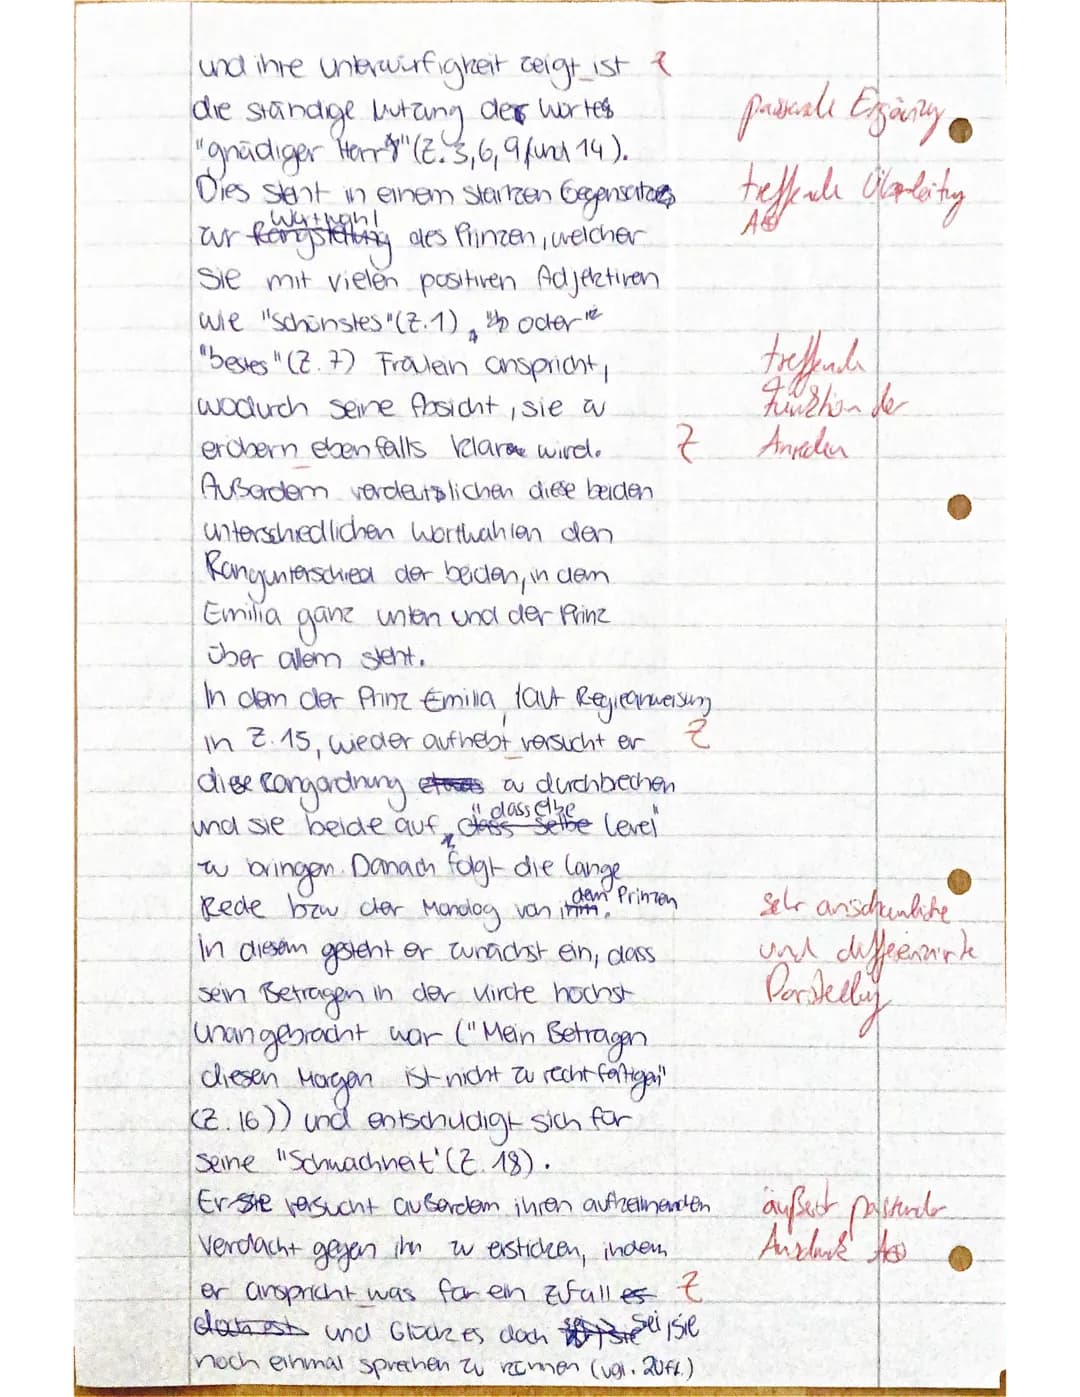 und ihre Unterwürfigkeit zeigt ist Z
die ständige Nutzung des Wortes passende Ergänzung
"gnädiger Herr" (Z. 3, 6, 9 und 14).
Dies steht in einem starken Gegensatz treffende Überleitung
Wortwahl A⊕
zur Rangstellung des Prinzen, welcher
Sie mit vielen positiven Adjektiven
wie "schönstes" (Z. 1), oder
"bestes" (Z. 7) Fräulein anspricht, treffende
wodurch seine Absicht, sie zu Funktion der
erobern ebenfalls klar wird. Z Anreden
Außerdem verdeutlichen diese beiden
unterschiedlichen Wortwahlen den
Rangunterschied der beiden, in dem
Emilia ganz unten und der Prinz
über allem steht.
In dem der Prinz Emilia, laut Regieanweisung
in Z. 15, wieder aufhebt versucht er Z
diese Rangordnung etwas zu durchbechen
"dasselbe
und sie beide auf dass selbe Level"
zu bringen. Danach folgt die lange
dem Prinzen
Rede bzw der Monolog von ihm. sehr anschauliche
In diesem gesteht er zunächst ein, dass und differenzierte
sein Betragen in der Kirche höchst Darstellung
unangebracht war ("Mein Betragen
diesen Morgen ist nicht zu rechtfertigen"
(Z. 16)) und entschudigt sich für
seine "Schwachheit" (Z. 18).
Er sie versucht außerdem ihren aufkeimenden äußerst passender
Verdacht gegen ihn zu ersticken, indem Ausdruck A⊕
er anspricht was für ein Zufall es Z
doch est und Glück es doch sei, sie
noch einmal sprechen zu können (vgl. 20ff.)